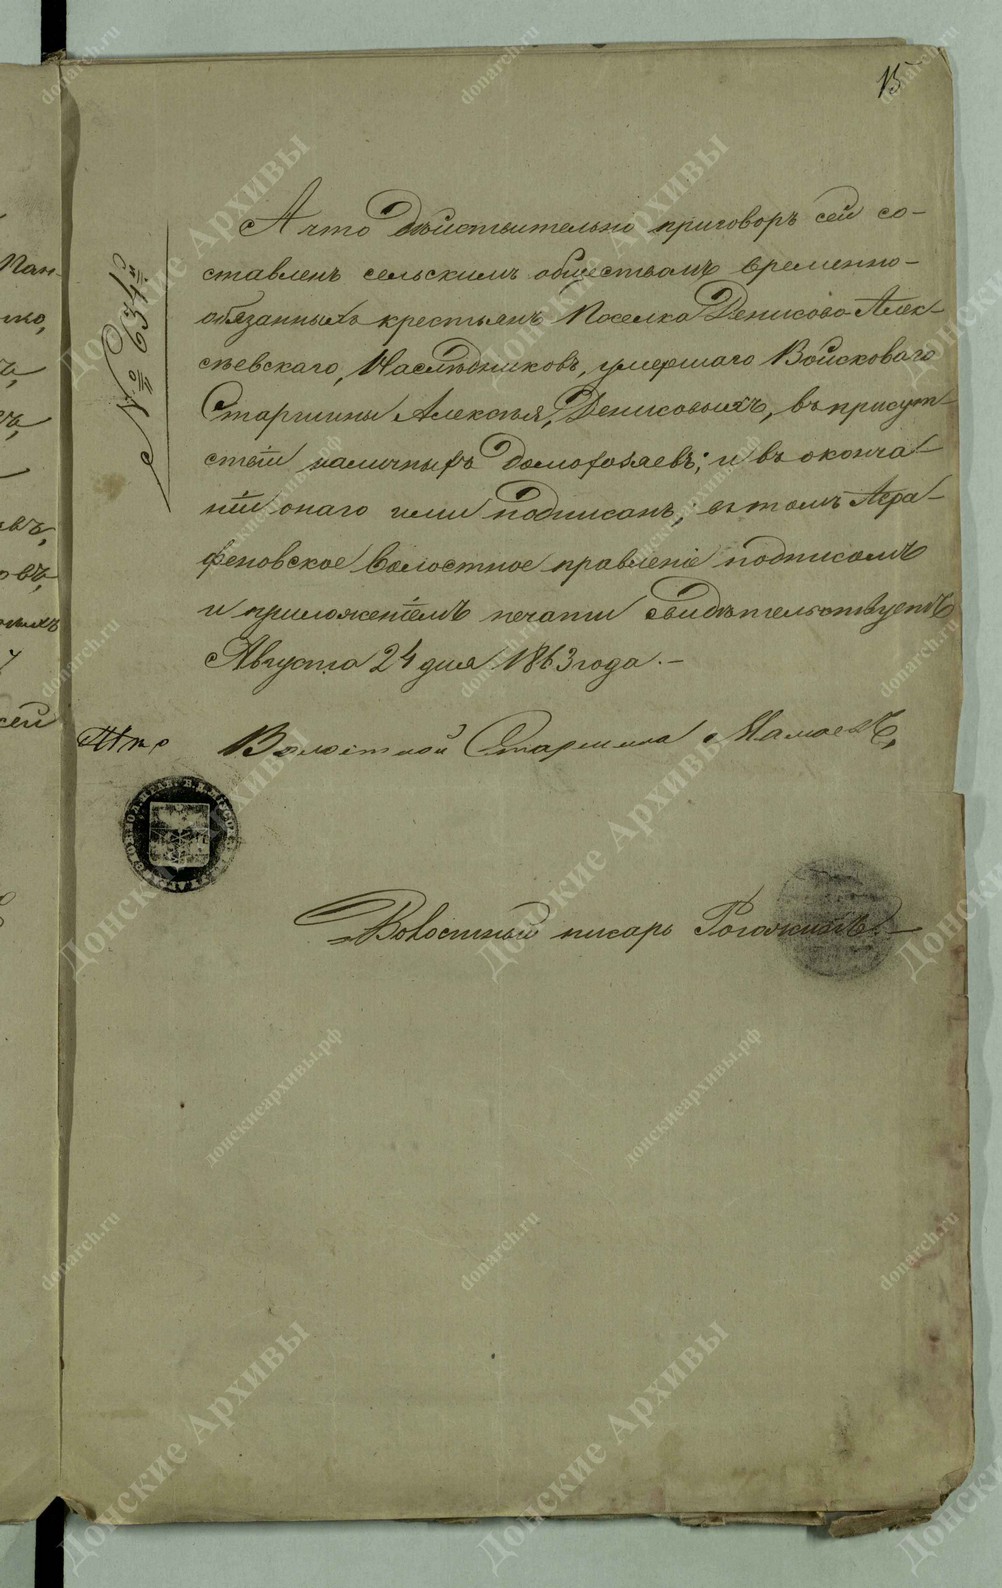 15
№ 634й
А что дѣйствительно приговоръ сей со-
ставленъ сельскимъ обществомъ временно-
обязанныхъ крестьянъ Поселка Денисово-Алек-
сѣевскаго, Наслѣдниковъ, умершаго Войсковаго
Старшины Алексѣя, Денисовыхъ, въ присут-
ствіи наличныхъ домохозяевъ; и въ оконча-
ніи онаго ими подписанъ; въ томъ Агра-
феновское волостное правленіе подписомъ
и приложеніемъ печати свидѣтельствуетъ
Августа 24 дня 1863 года.-
Волостной Старшина Мамаевъ,
Волостный писарь Рогожинъ.-
Пан-
то,
въ,
овъ,
сей
Донские Архивы
donarch.ru
донскиеархивы.рф